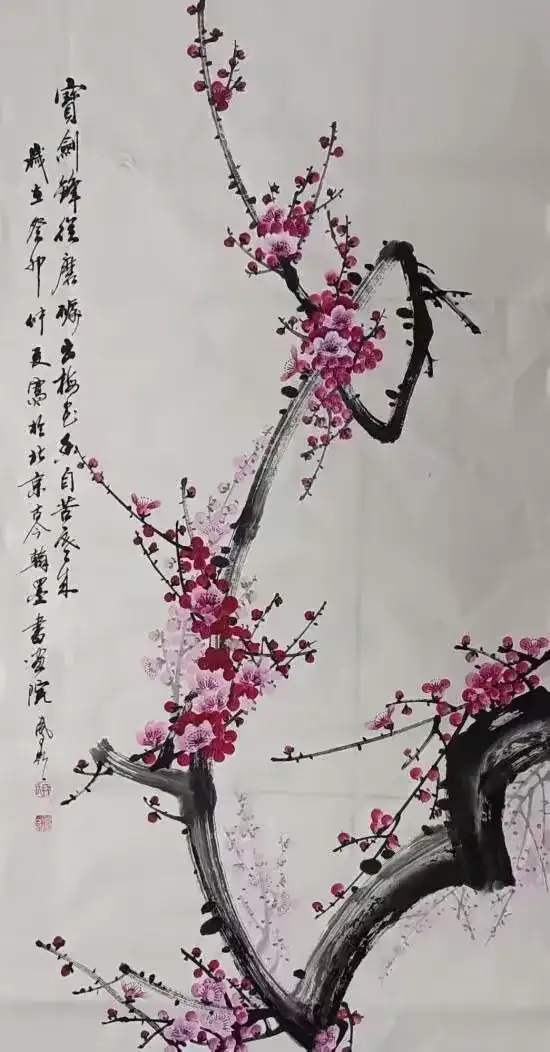 寶劍鋒從磨礪出梅花香自苦寒來
歲在癸卯仲夏寫於北京古今翰墨書畫院